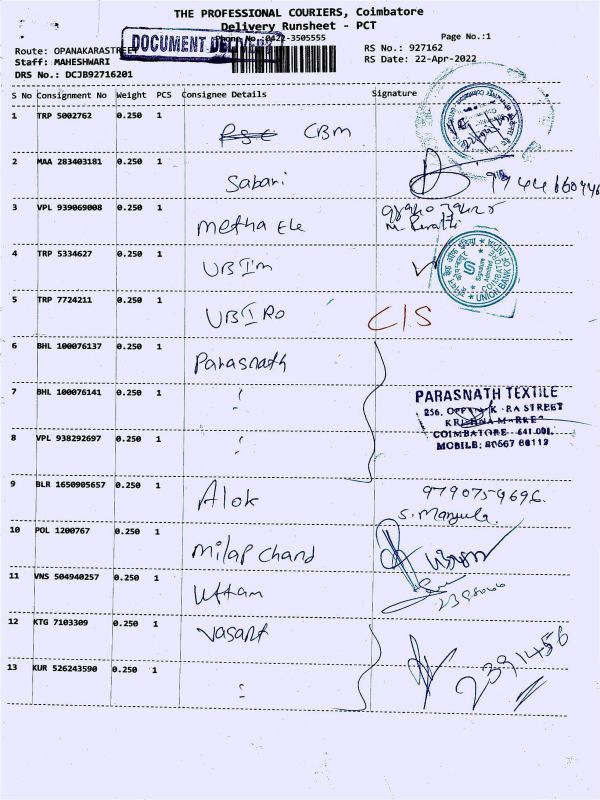 THE PROFESSIONAL COURIERS, Coimbatore
Delivery Runsheet - PCT
DOCUMENT
Phone No.:0422-3505555
Page No.:1
Route: OPANAKARASTREET
RS No.: 927162
Staff: MAHESHWARI
RS Date: 22-Apr-2022
DRS No.: DCJB92716201
S No Consignment No Weight PCS Consignee Details Signature
1 TRP 5002762 0.250 1 CBM
2 MAA 283403181 0.250 1 Sabari
3 VPL 939069008 0.250 1 Metha Ele
4 TRP 5334627 0.250 1 UBI M
UNION BANK OF INDIA
COIMBATORE
5 TRP 7724211 0.250 1 UBI RO C/S
6 BHL 100076137 0.250 1 Parasnath
7 BHL 100076141 0.250 1 "
PARASNATH TEXTILE
256, STREET
COIMBATORE - 641 001.
MOBILE:
8 VPL 938292697 0.250 1 "
9 BLR 1650905657 0.250 1 Alok 9790759696
S. Manjula
10 POL 1200767 0.250 1 Milap Chand
11 VNS 504940257 0.250 1 Uttam
12 KTG 7103309 0.250 1 Vasant 2391456
13 KUR 526243590 0.250 1 "